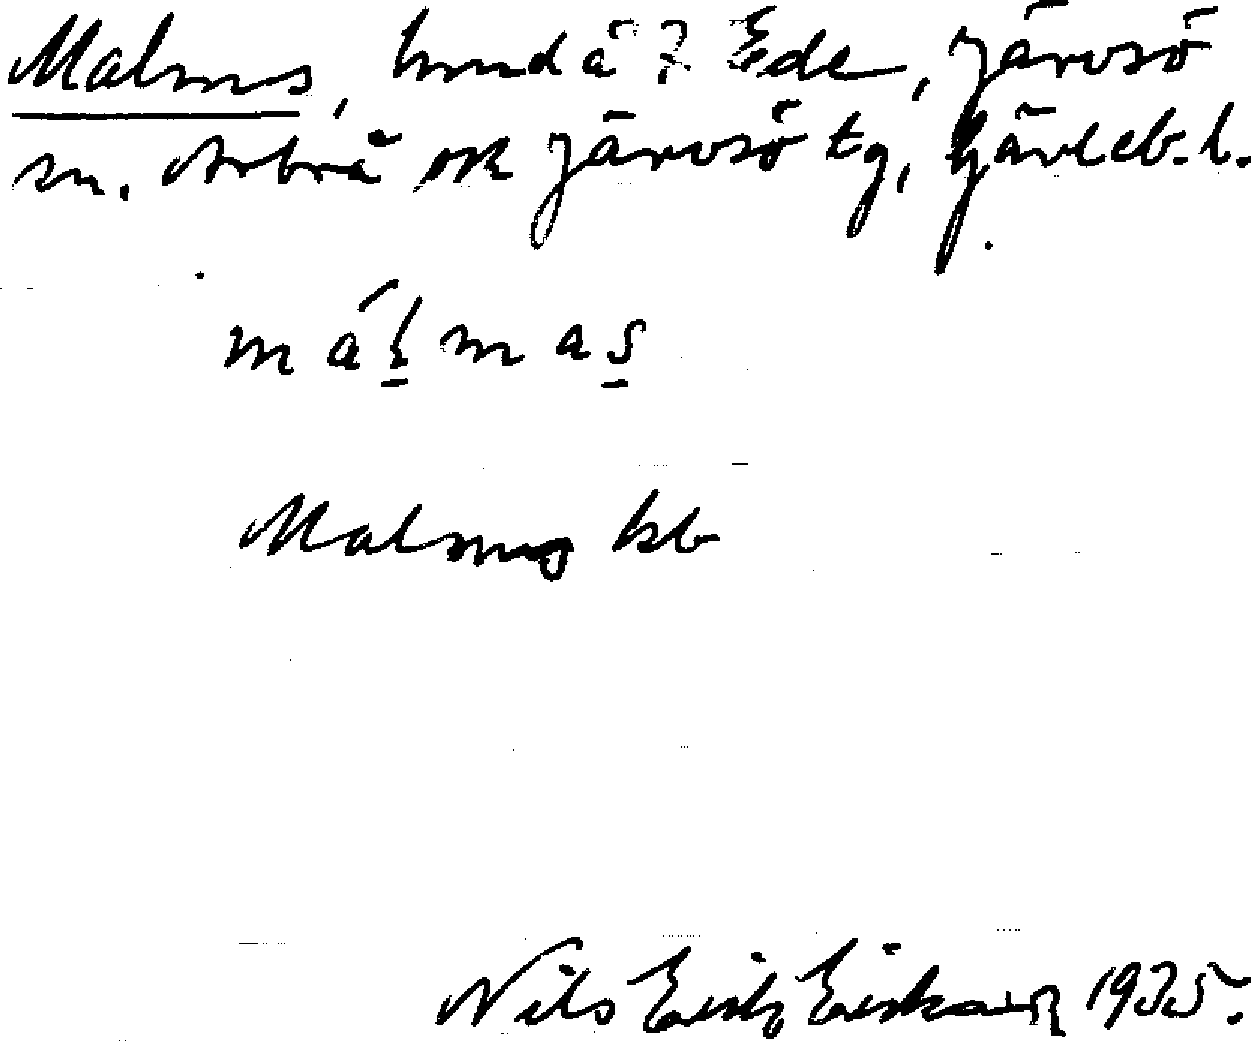 Malms, hmd å 7 Ede, Järvsö
sn. Arbrå ok Järvsö tg, Gävleb. l.
málmas
Malms kb
Nils Erik Eriksson 1935.